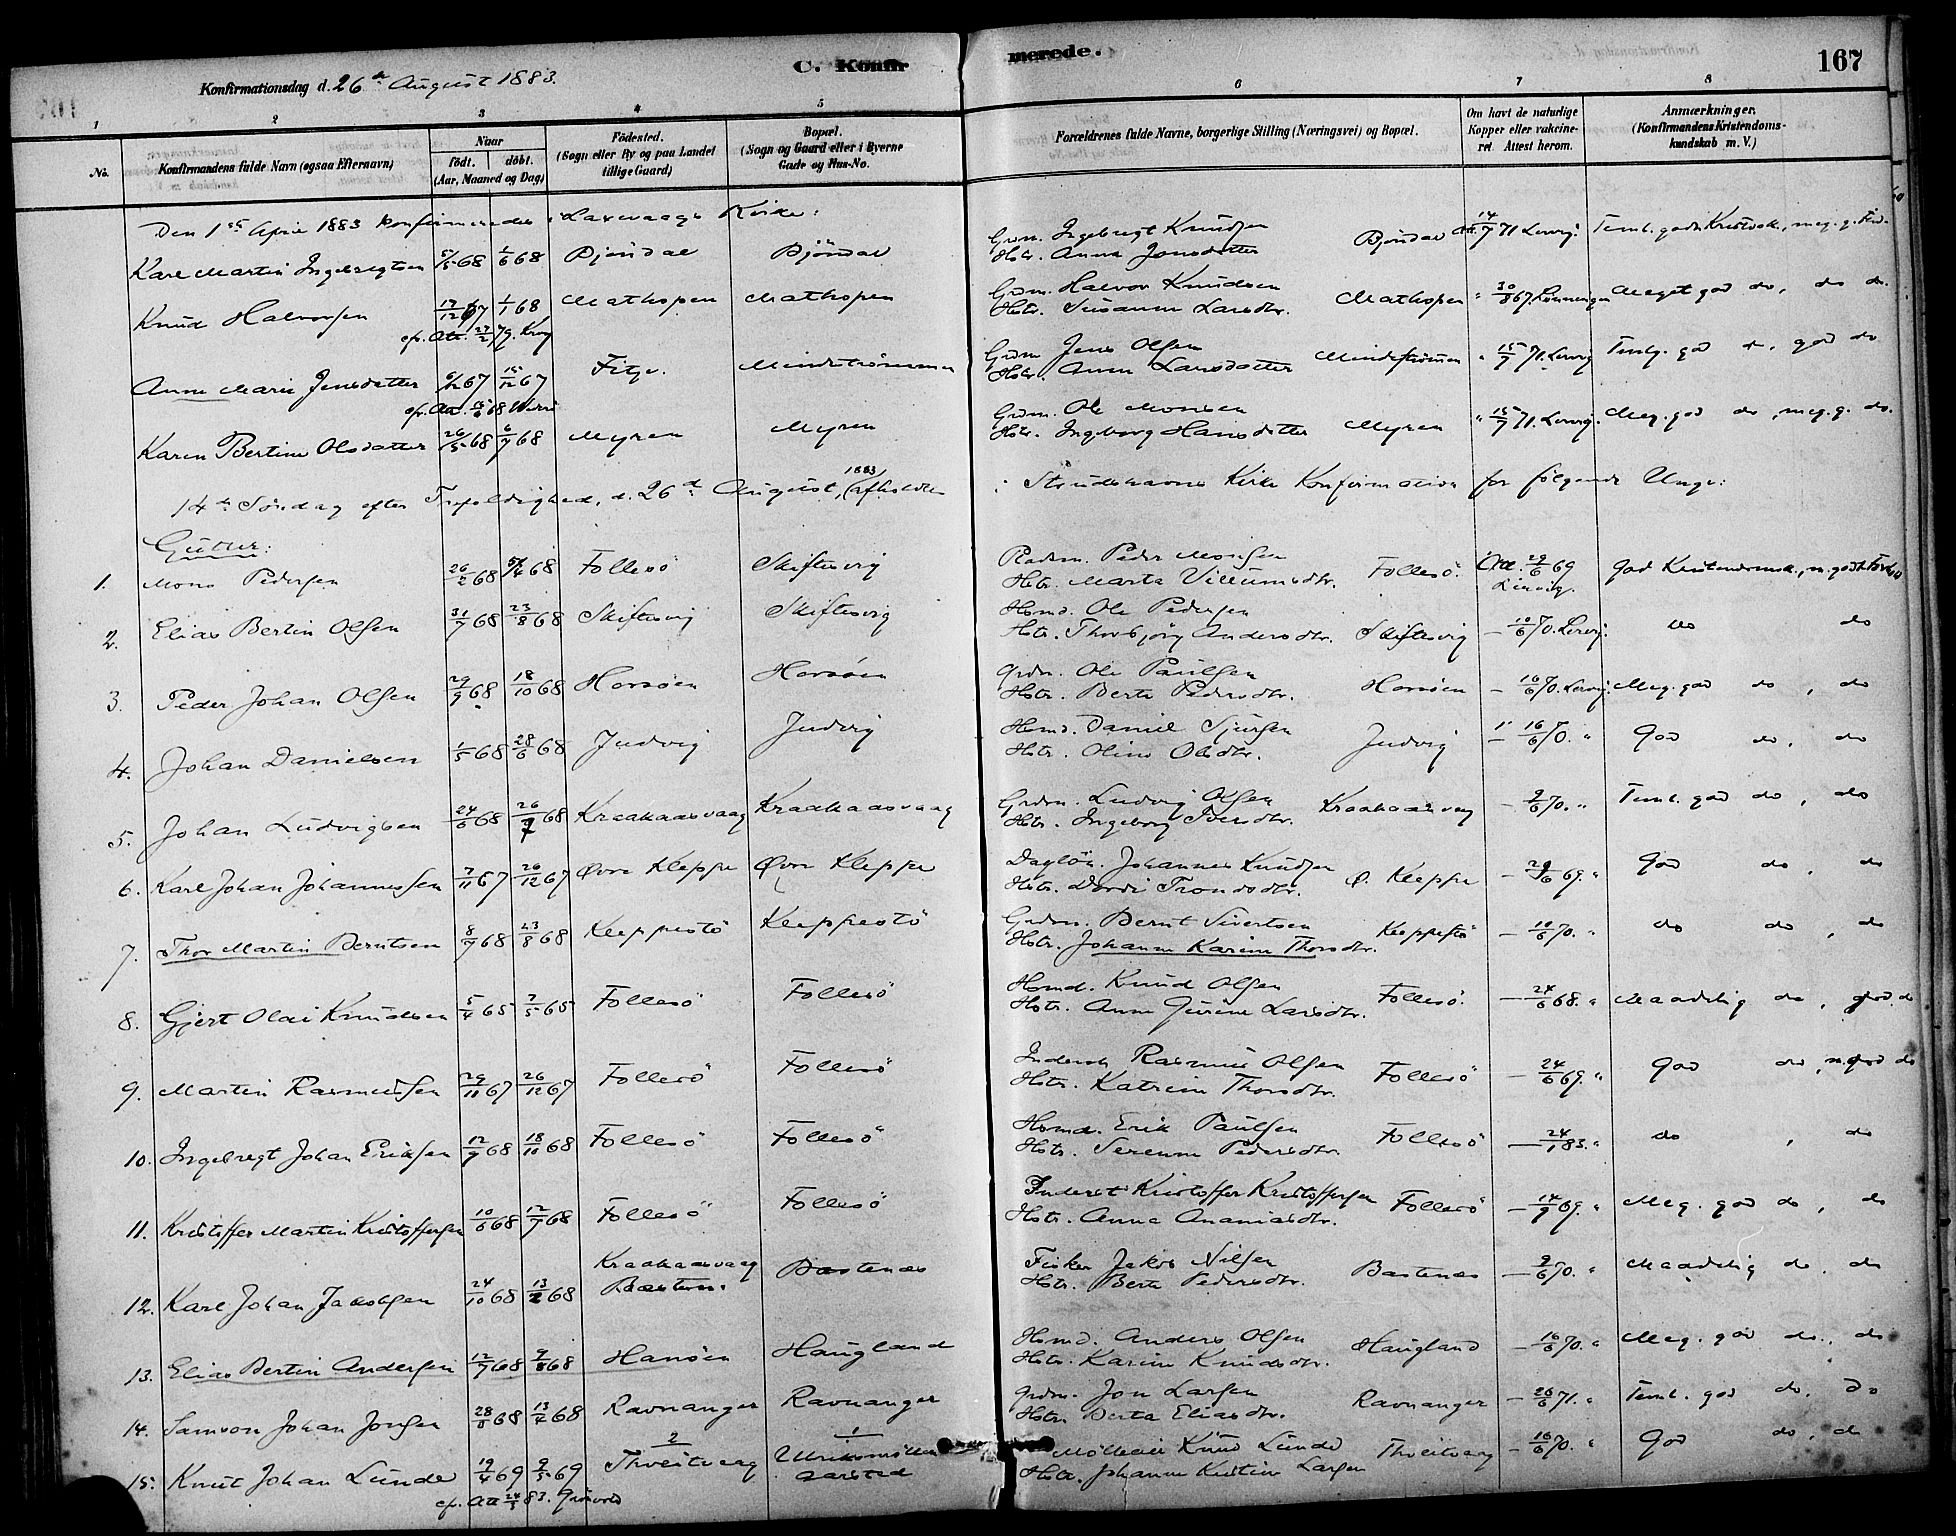 C. Konfirmerede.
167
Konfirmationsdag d. 26de August 1883.
1 2 3 4 5 6 7 8
No.
Konfirmandens fulde Navn (ogsaa Efternavn)
Naar
födt. döbt.
(Aar, Maaned og Dag)
Födested.
(Sogn eller By og paa Landet
tillige Gaard)
Bopæl.
(Sogn og Gaard eller i Byerne
Gade og Hus-No.
Forældrenes fulde Navne, borgerlige Stilling (Næringsvei) og Bopæl.
Om havt de naturlige
Kopper eller vakcine-
ret. Attest herom.
Anmærkninger.
(Konfirmandens Kristendoms-
kundskab m. V.)
Den 1ste April 1883 konfirmeredes i Laxevaags Kirke:
Karl Martin Ingebregtsen 5/5 68 1/6 68 Bjöndal Bjöndal
Grm. Ingebregt Knudsen
Hstr. Anna Jonsdatter Bjöndal 14/7 71
Knud Halvorsen 17/12 67 1/1 68 Mathopen Mathopen
Grdm. Halvor Knudsen
Hstr. Susanne Larsdtr. Mathopen Meget god do, do do.
Anne Marie Jensdatter 6/12 67 15/12 67 Fitje.
Grdm Jens Olsen
Hstr. Anna Larsdatter 15/7 71. god do
Karen Bertine Olsdatter 26/5 68 6/7 68 Myren Myren
Grdm. Ole Monsen
Hstr. Ingeborg Hansdatter Myren 15/7 71. Meg. god do, meg. g. do.
14de Söndag efter Trefoldighed, d. 26de August, (1883) afholdtes i Strudshavns Kirke Konfirmation for fölgende Unge:
Gutter:
1. Mons Pedersen 26/2 68 5/4 68 Follesö Skiftesvig
Peder Monsen
Hstr. Marta Villumsdtr. Follesö. Att. 29/6 69
2. Elias Bertin Olsen 31/7 68 23/8 68 Skiftesvig Skiftesvig
Hsmd. Ole Pedersen
Hstr. Thorbjörg Andersdtr. Skiftesvig – 10/6 70. do do
3. Peder Johan Olsen 29/9 68 18/10 68 Horsöen Horsöen
Grdm. Ole Paulsen
Hstr. Berte Pedersdtr. Horsöen – 16/6 70. Meg. god do, do
4. Johan Danielsen 1/5 68 28/6 68 Judvig Judvig
Hsmd. Daniel Sjursen
Hstr. Oline Olsdtr. Judvig 16/6 70. " God do, do
5. Johan Ludvigsen 24/6 68 26/7 68 Kraakaasvaag Kraakaasvaag
Grdm. Ludvig Olsen
Hstr. Ingeborg Iversdtr. Kraakaasvaag – 9/6 70. " Teml. god do, do
6. Karl Johan Johannessen 7/11 67 26/12 67 Øvre Kleppe Øvre Kleppe
Daglön. Johannes Knudsen
Hstr. Dordi Tronsdtr. Ø. Kleppe 69. " God do, do
7. Thor Martin Berntsen 8/7 68 23/8 68 Kleppestö Kleppestö
Grdm. Bernt Sivertsen
Hstr. Johanne Karine Thorsdtr. Kleppestö – 10/6 70. " do do, do
8. Gjert Olai Knudsen 5/4 65 7/5 65 Follesö Follesö
Hsmd. Knud Olsen
Hstr. Anne Gurine Larsdtr. Follesö. – 24/6 68. " Maadelig do, god do
9. Martin Rasmussen 29/11 67 26/12 67 Follesö Follesö
Inderst. Rasmus Olsen
Hstr. Katrine Thorsdtr. Follesö – 24/6 69. " God do, m. god do
10. Ingebregt Johan Eriksen 12/9 68 18/10 68 Follesö Follesö
Hsmd. Erik Paulsen
Hstr. Serenne Pedersdtr. Follesö – 24/1 83. " do, do
11. Kristoffer Martin Kristoffersen 10/6 68 12/7 68 Follesö Follesö
Inderst Kristoffer Kristoffersen
Hstr. Anna Ananiasdtr. Follesö – 14/9 69. " Meg. god do, do
12. Karl Johan Jakobsen 24/10 68 13/2 68 Kraakaasvaag Bastenes
Fisker Jakob Nilsen
Hstr. Berte Pedersdtr. Bastenes – 9/6 70. " Maadelig do, do
13. Elias Bertin Andersen 12/7 68 9/8 68 Hanöen Haugland
Hsmd. Anders Olsen
Hstr. Karine Knudsdtr. Haugland – 16/6 70. " Meg. god do, do
14. Samson Johan Jonsen 28/8 68 68 Ravnanger Ravnanger
Grdm. Jon Larsen
Hstr. Berta Eliasdtr. Ravnanger – 26/6 71. " Teml. god do, do
15. Knut Johan Lunde 19/4 69 9/5 69 Thveitvaag Ulriksmöllen Aarstad
Möller Knud Lunde
Hstr. Johanne Kristine Larsen Thveitvaag – 16/6 70. " God do, do
cfr. Att 24/3 83.